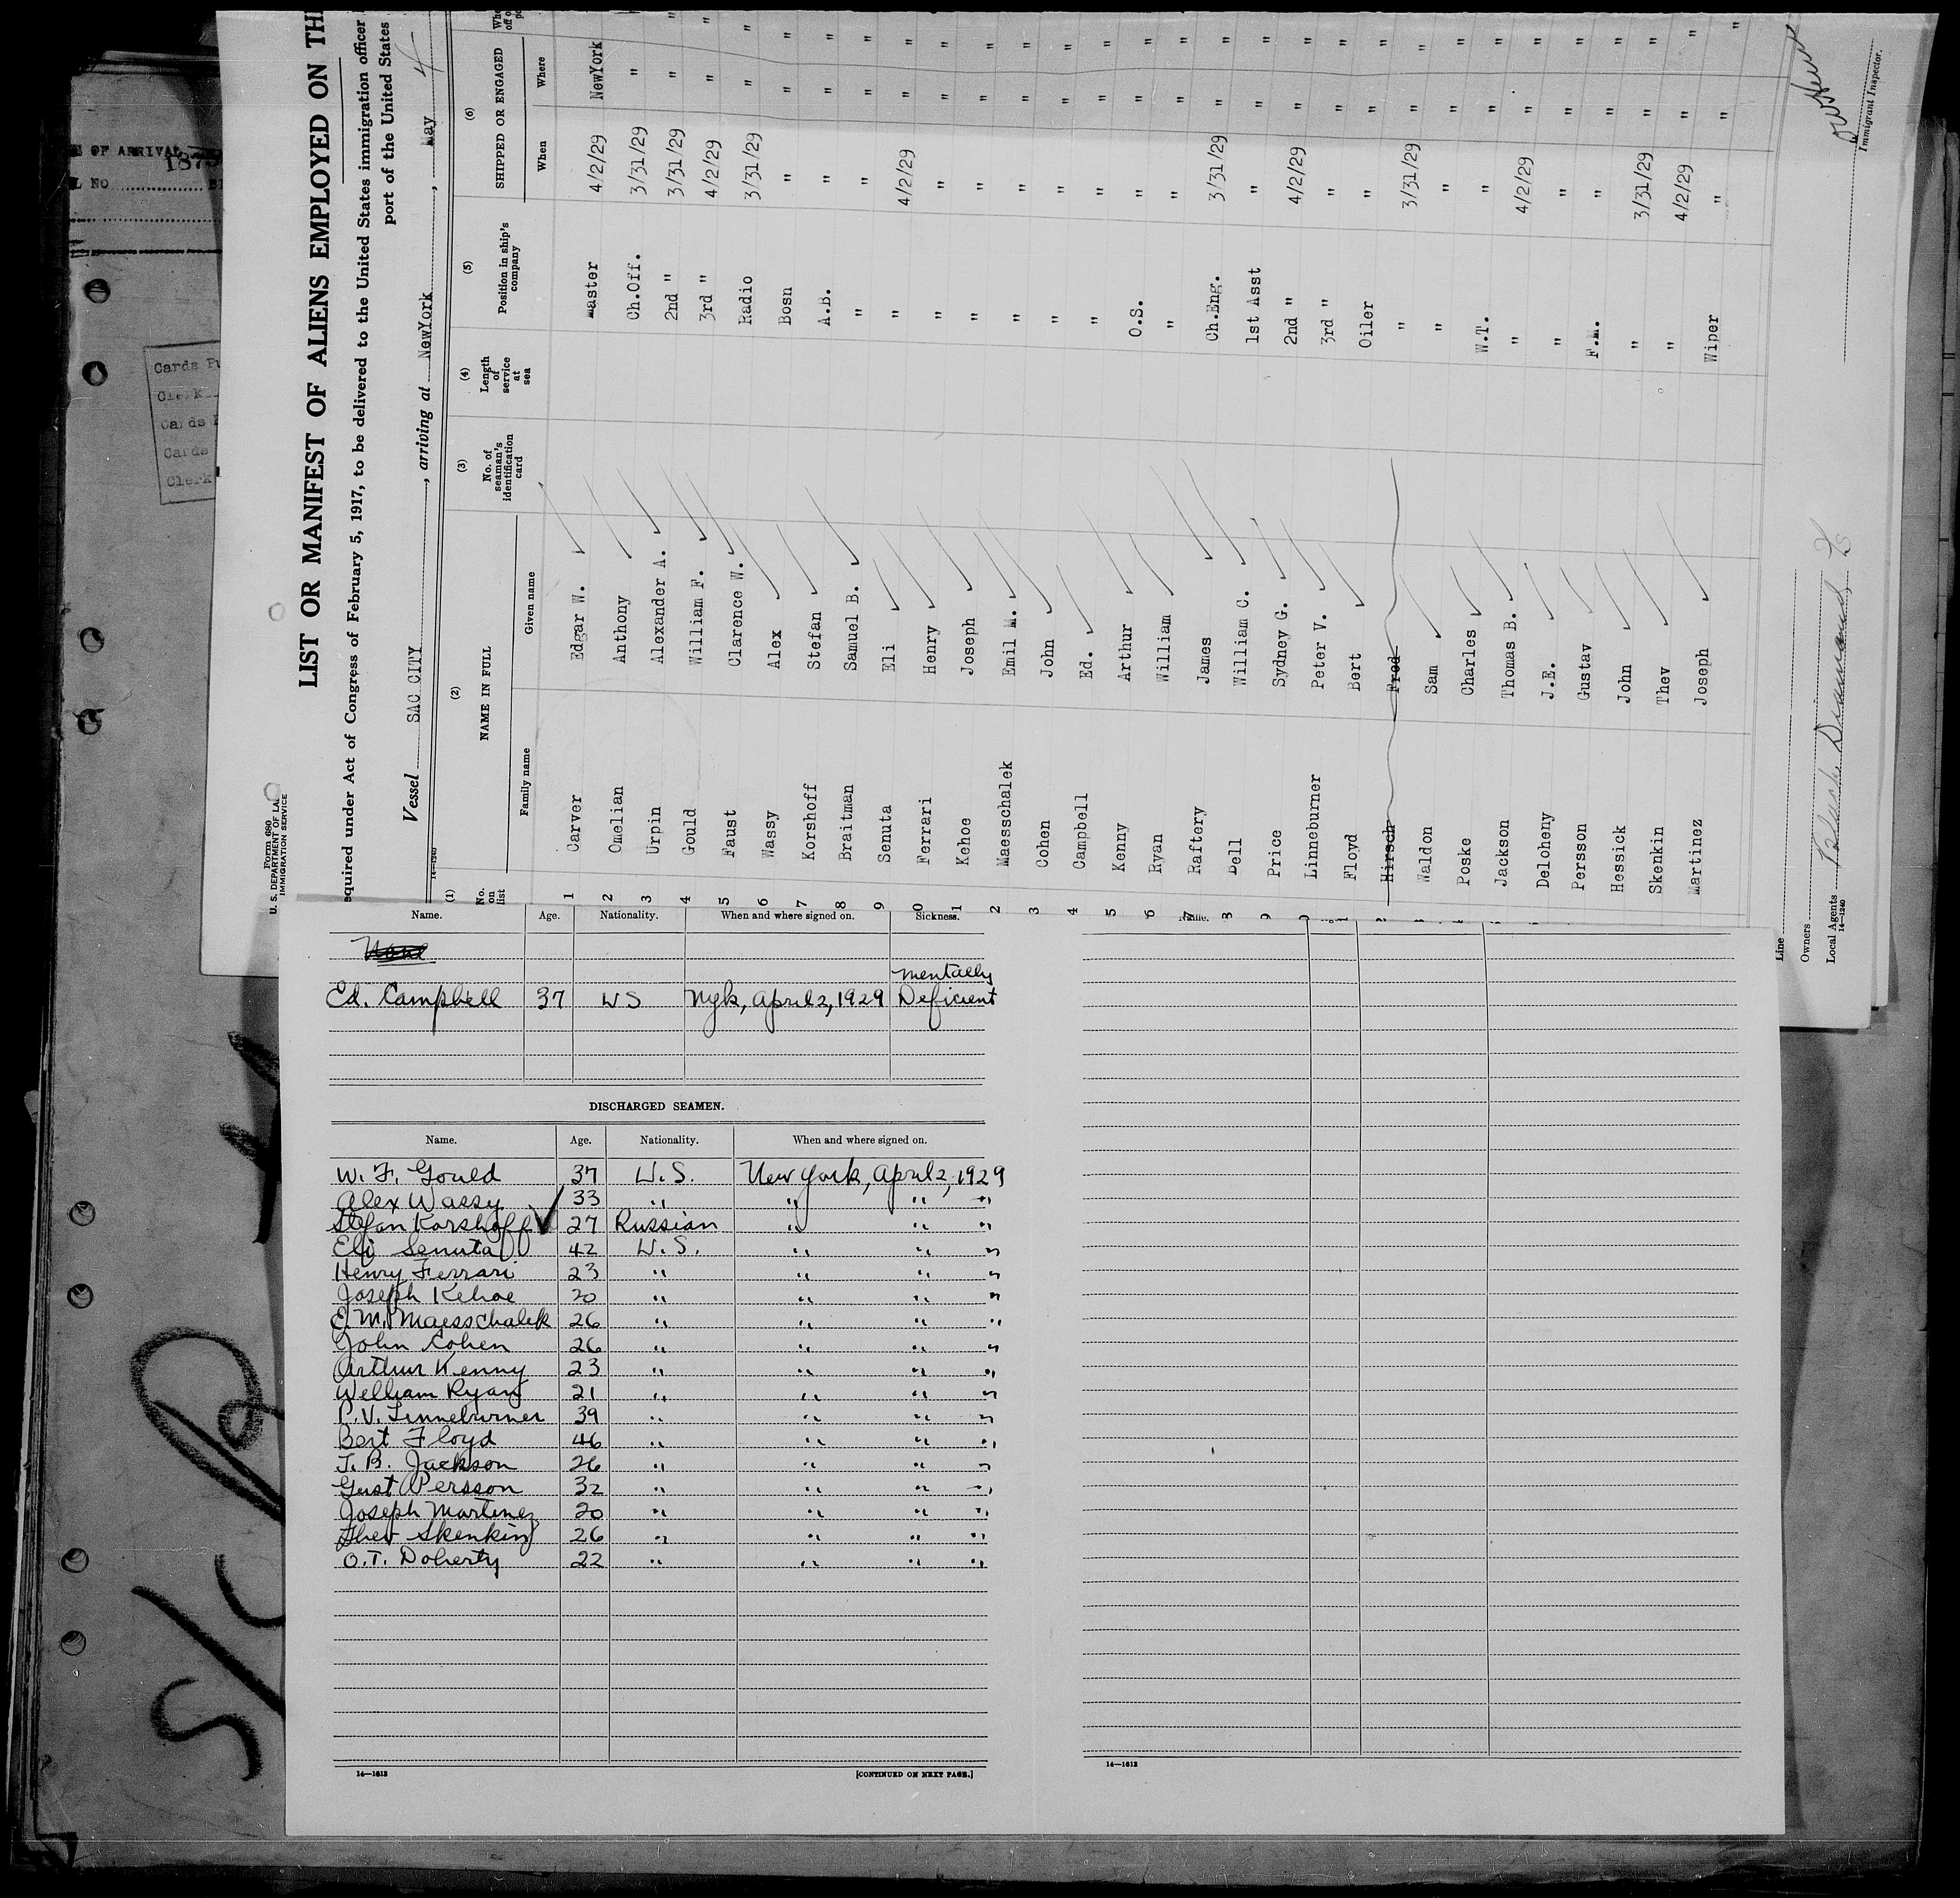 OF ARRIVAL
L NO
Cards
Clerk
Cards
Cards
Clerk
Form 680
U. S. DEPARTMENT OF
IMMIGRATION SERVICE
LIST OR MANIFEST OF ALIENS EMPLOYED ON
equired under Act of Congress of February 5, 1917, to be delivered to the United States immigration officer
port of the United States
Vessel SAC CITY, arriving at NewYork, May 4
14—1240
(1) No. on list (2) NAME IN FULL Family name Given name (3) No. of seaman's identification card (4) Length of service at sea (5) Position in ship's company (6) SHIPPED OR ENGAGED When Where
1 Carver Edgar W. Master 4/2/29 NewYork
2 Omelian Anthony Ch.Off. 3/31/29 " "
3 Urpin Alexander A. 2nd " 3/31/29 " "
4 Gould William F. 3rd " 4/2/29 " "
5 Faust Clarence W. Radio 3/31/29 " "
6 Wassy Alex Bosn " " "
7 Korshoff Stefan A.B. " " "
8 Braitman Samuel B. " " " "
9 Senuta Eli " 4/2/29 " "
0 Ferrari Henry " " " "
1 Kehoe Joseph " " " "
2 Maesschalek Emil M. " " " "
3 Cohen John " " " "
4 Campbell Ed. " " " "
5 Kenny Arthur O.S. " " "
6 Ryan William " " " "
7 Raftery James Ch.Eng. 3/31/29 " "
8 Dell William C. 1st Asst " " "
9 Price Sydney G. 2nd " 4/2/29 " "
Linneburner Peter V. 3rd " " " "
1 Floyd Bert Oiler " " "
2 Hirsch Fred " 3/31/29 " "
Waldon Sam " " " "
Poske Charles W.T. " " "
Jackson Thomas B. " 4/2/29 " "
Deloheny J.E. " " " "
Persson Gustav F.M. " " "
Hessick John " 3/31/29 " "
Skenkin Thev " 4/2/29 " "
Martinez Joseph Wiper " " "
Line
Owners
Local Agents
14—1240
Immigrant Inspector.
Name. Age. Nationality. When and where signed on. Sickness.
None
Mentally
Ed. Campbell 37 US Nyk, April 2, 1929 Deficient
DISCHARGED SEAMEN.
Name. Age. Nationality. When and where signed on.
W. F. Gould 37 U.S. New York, April 2, 1929
Alex Wassy 33 " " " "
Stefan Korshoff 27 Russian " " "
Eli Senuta 42 U.S. " " "
Henry Ferrari 23 " " " "
Joseph Kehoe 20 " " " "
E. M. Maesschalek 26 " " " "
John Cohen 26 " " " "
Arthur Kenny 23 " " " "
William Ryan 21 " " " "
P. V. Linneburner 39 " " " "
Bert Floyd 46 " " " "
T. B. Jackson 26 " " " "
Gust Persson 32 " " " "
Joseph Martinez 20 " " " "
Thev Skenkin 26 " " " "
O. T. Doherty 22 " " " "
14—1613 [CONTINUED ON NEXT PAGE.]
Name.
14—1613